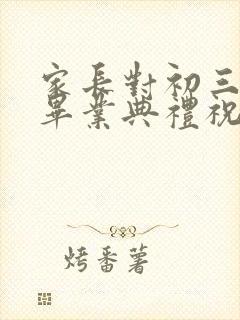 家長對初三
畢業典禮祝
烤番薯